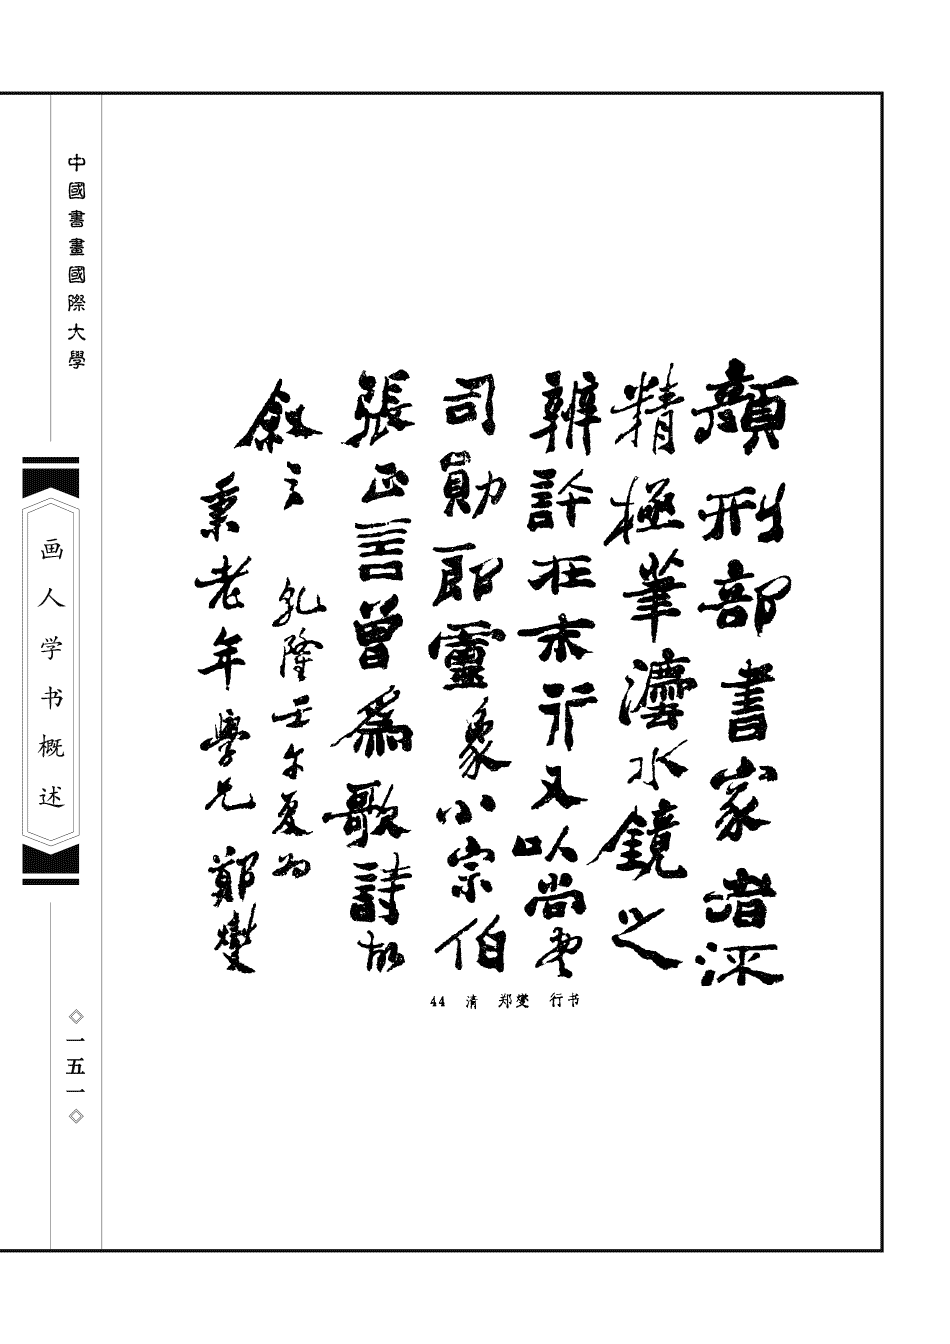 顏刑部書家者評
精極筆濤水鏡之
辨許在末行又以尚書
司勛郎靈象小宗伯
張正言曾爲歌詩故
敘之 乾隆壬午夏为
秉老年學兄 鄭燮
44 清 郑燮 行书
中國書畫國際大學
画人学书概述
一五一